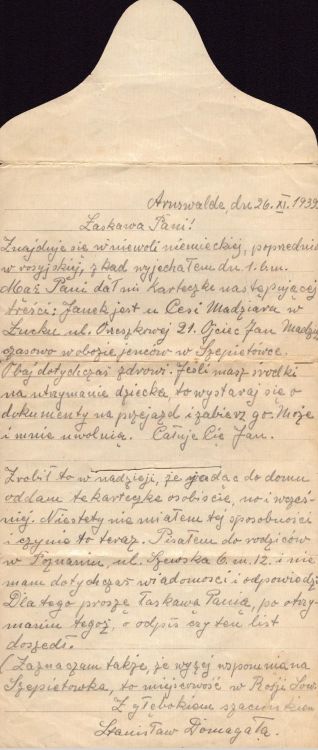 Arnswalde, dn 26. XI. 1939
Łaskawa Pani!
Znajduje się w niewoli niemieckiej, poprzednio
w rosyjskiej, z kąd wyjechałem dn 1. b.m.
Mąż Pani dał mi karteczkę następującej
treści: „Janek jest u Cesi Madziara w
Łucku ul. Orzeszkowej 21. Ojciec Jan Madzia
czasowo w obozie jenców w Szepietówce.
Obaj dotychczas zdrowi. Jeśli masz środki
na utrzymanie dziecka, to wystaraj się o
dokumenty na przejazd i zabierz go. Może
i mnie uwolnią. Całuje Cię Jan.
Zrobił to w nadzieji, że jadąc do domu
oddam te karteczkę osobiscie, no i wcześ-
niej. Niestety nie miałem tej sposobnosci
i czynię to teraz. Pisałem do rodziców
w Poznaniu, ul. Szewska 6. m. 12. i nie
mam dotychczas wiadomosci i odpowiedzi.
Dla tego proszę Łaskawą Panią, po otrzy-
maniu tegoż, o odpis czy ten list
doszedł.
(Zaznaczam także, że wyżej wspomniana
Szepietowka, to miejscowość w Rosji Sow.
Z głębokiem szacunkiem
Stanisław Domagała.